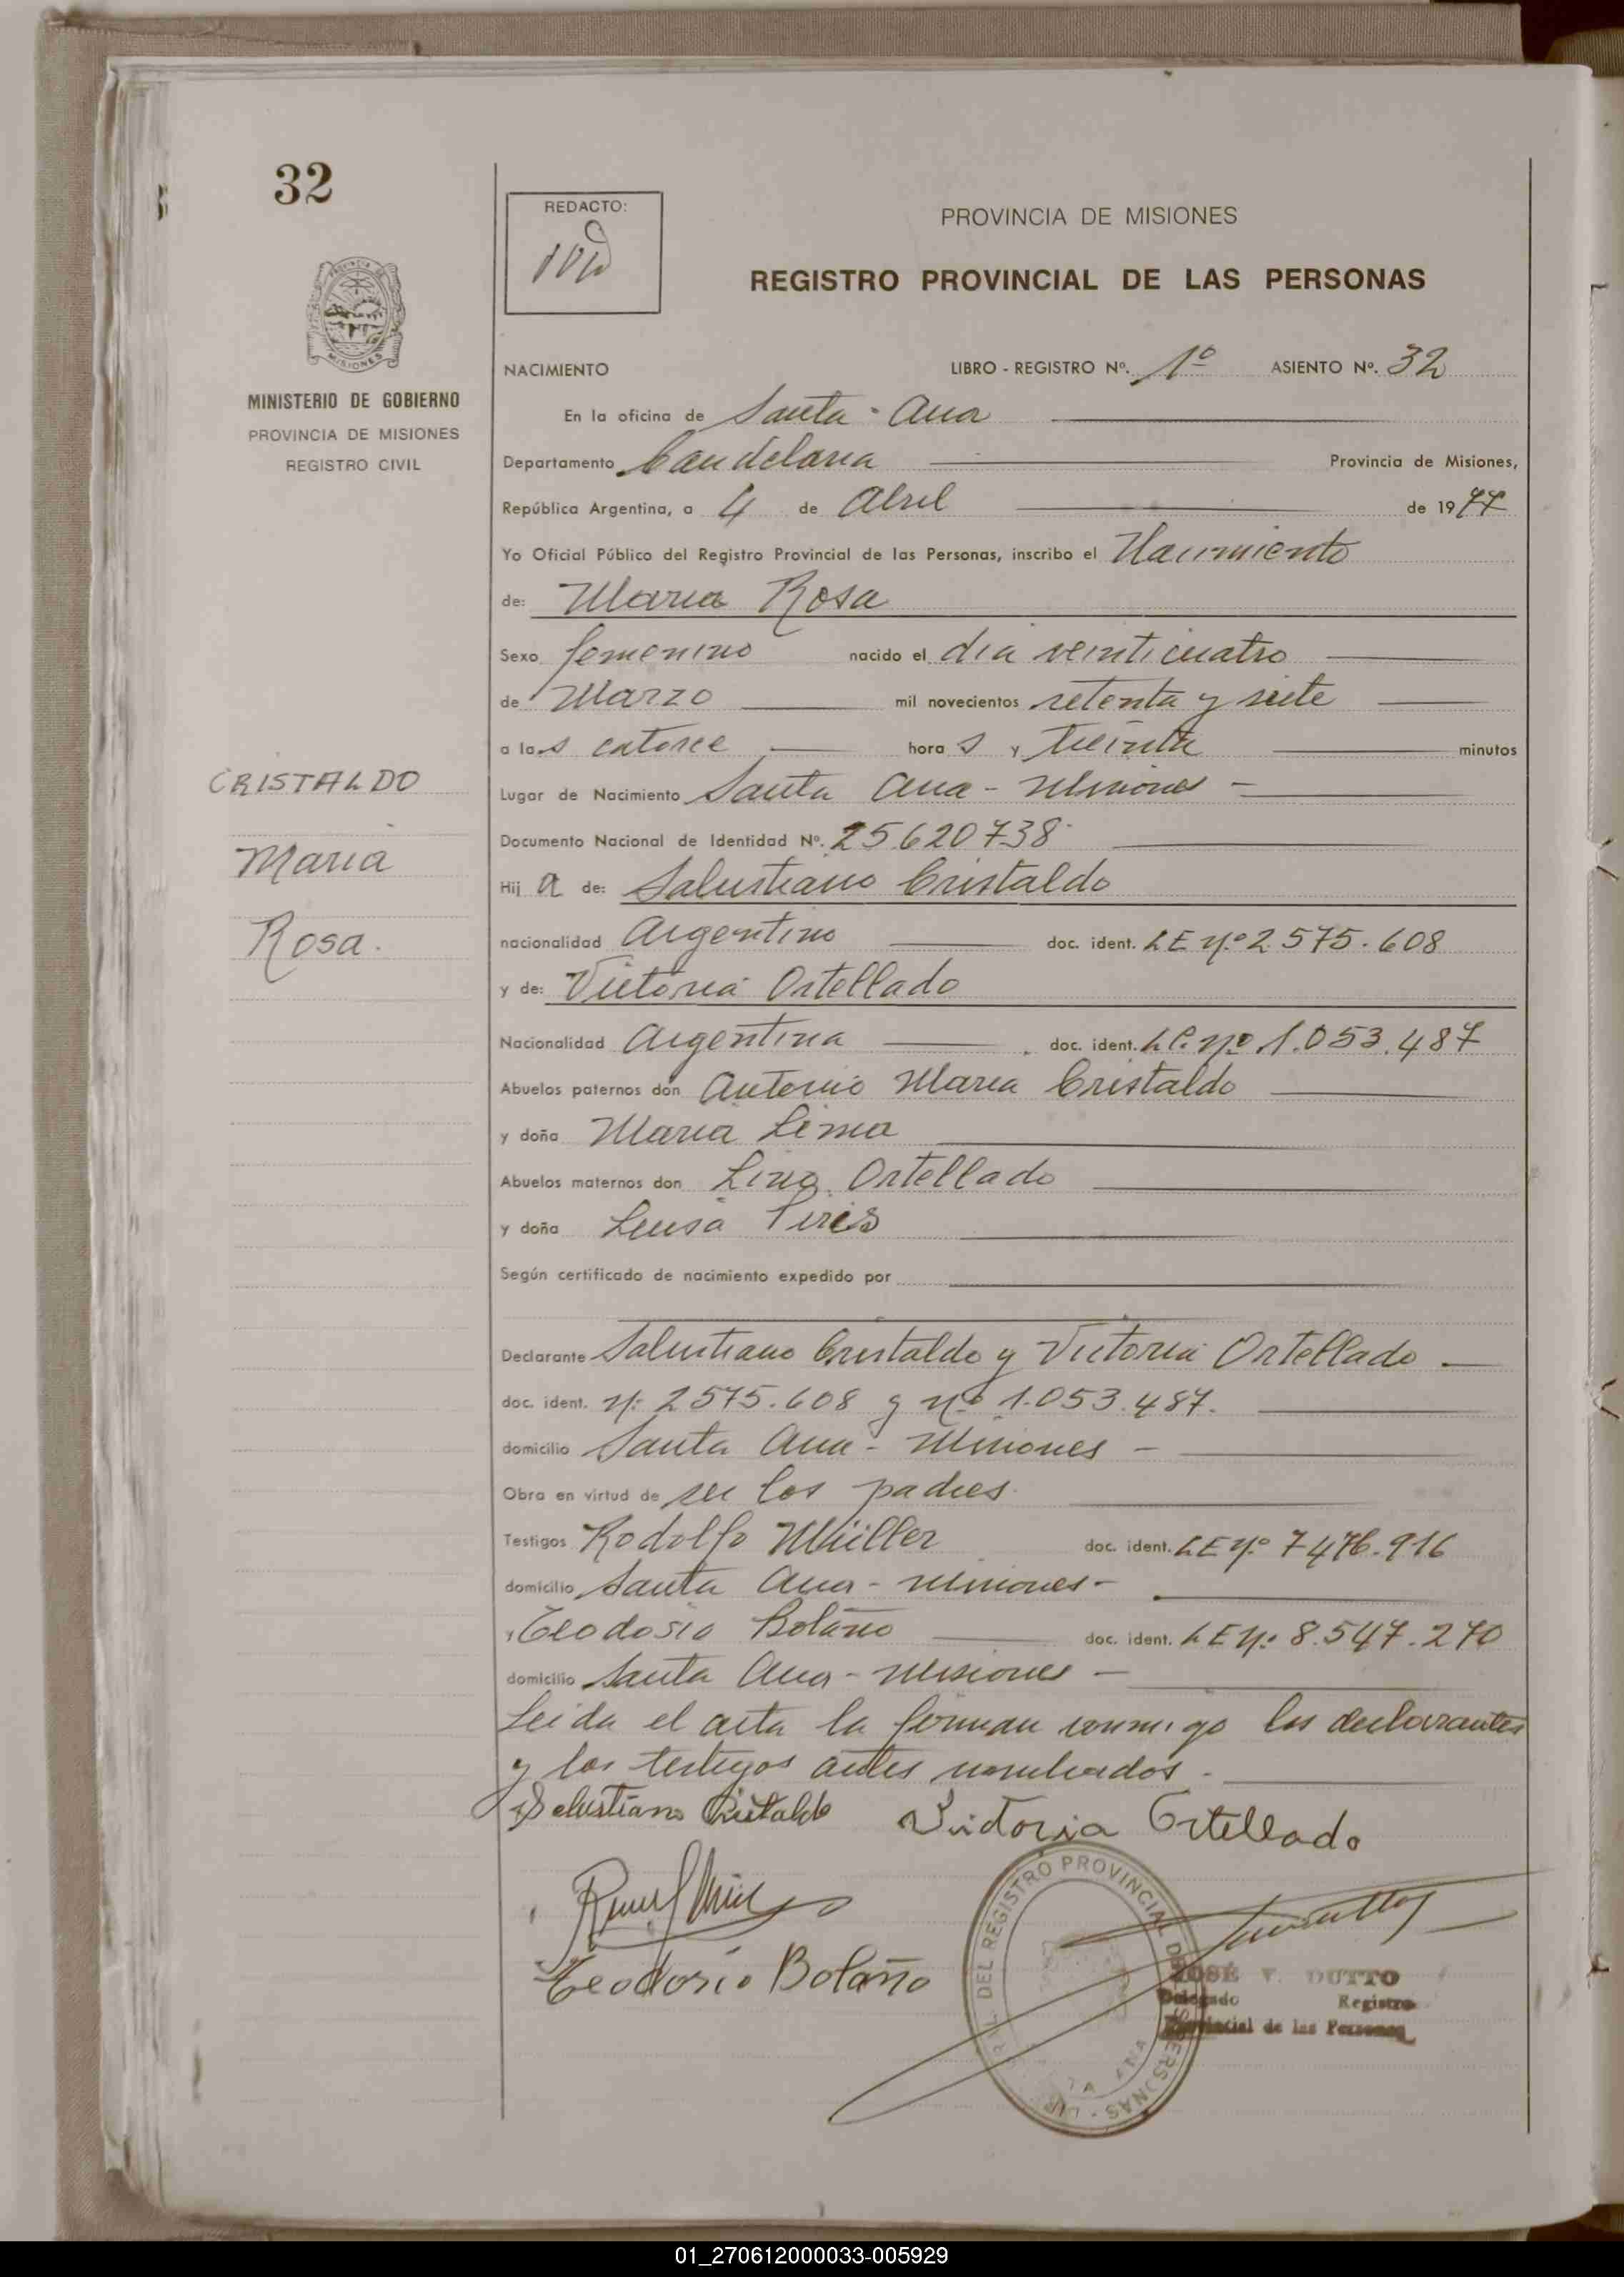 32
REDACTO:
PROVINCIA DE MISIONES
REGISTRO PROVINCIAL DE LAS PERSONAS
MISIONES
MINISTERIO DE GOBIERNO
PROVINCIA DE MISIONES
REGISTRO CIVIL
NACIMIENTO LIBRO - REGISTRO Nº. 1º ASIENTO Nº. 32
En la oficina de Santa - Ana
Departamento Candelaria Provincia de Misiones,
República Argentina, a 4 de Abril de 1977
Yo Oficial Público del Registro Provincial de las Personas, inscribo el Nacimiento
de: Maria Rosa
Sexo femenino nacido el dia veinticuatro
de Marzo mil novecientos setenta y siete
a las catorce horas y treinta minutos
CRISTALDO
Maria
Rosa.
Lugar de Nacimiento Santa Ana - Misiones -
Documento Nacional de Identidad Nº. 25.620738
Hija de: Salustiano Cristaldo
nacionalidad Argentino doc. ident. LE Nº 2.575.608
y de: Victoria Ortellado
Nacionalidad Argentina doc. ident. LC. Nº 1.053.487
Abuelos paternos don Antonio Maria Cristaldo
y doña Maria Lima
Abuelos maternos don Lino Ortellado
y doña Luisa Piris
Según certificado de nacimiento expedido por
Declarante Salustiano Cristaldo y Victoria Ortellado
doc. ident. Nº 2575.608 y Nº 1.053.487.
domicilio Santa Ana - Misiones -
Obra en virtud de ser los padres.
Testigos Rodolfo Müller doc. ident. LE Nº 7476.916
domicilio Santa Ana - Misiones -
y Teodosio Bolaño doc. ident. LE Nº 8.547.270
domicilio Santa Ana - Misiones -
Leida el acta la firman conmigo los declarantes
y los testigos antes nombrados.
Salustiano Cristaldo Victoria Ortellado
Teodosio Bolaño
DEL REGISTRO PROVINCIAL DE LAS PERSONAS
JOSÉ V. DUTTO
Delegado Registro
Provincial de las Personas
01_270612000033-005929